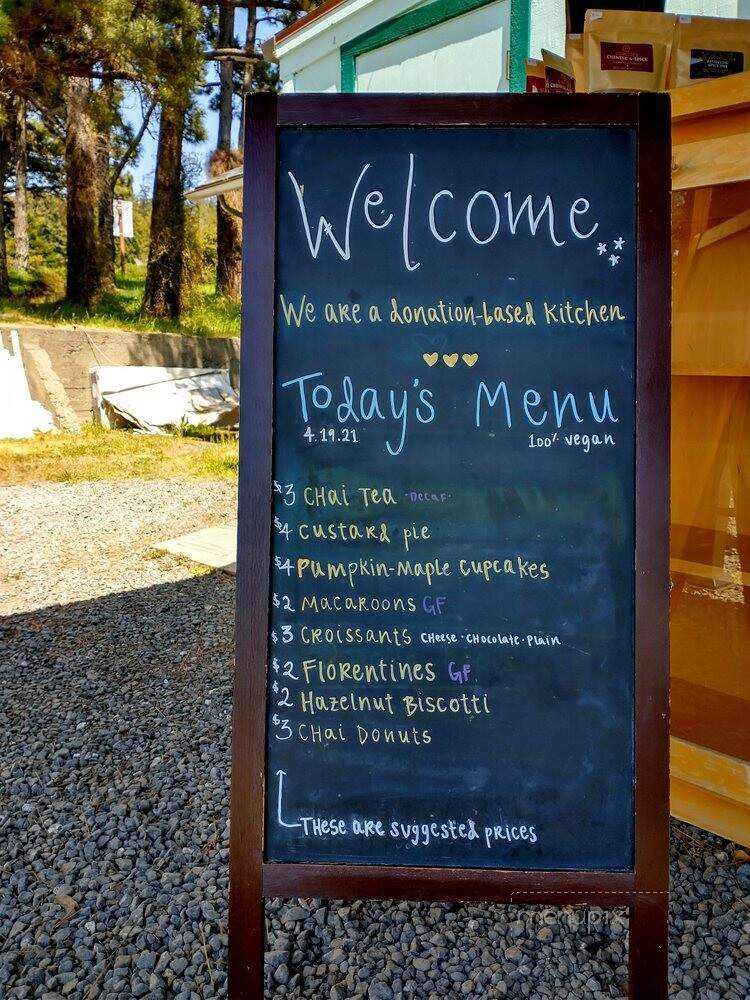 Welcome
We are a donation-based kitchen
Today's Menu
4.19.21 100% vegan
$3 Chai Tea ·Decaf·
$4 custard pie
$4 Pumpkin-Maple Cupcakes
$2 Macaroons GF
$3 Croissants Cheese·Chocolate·Plain
$2 Florentines GF
$2 Hazelnut Biscotti
$3 Chai Donuts
These are suggested prices